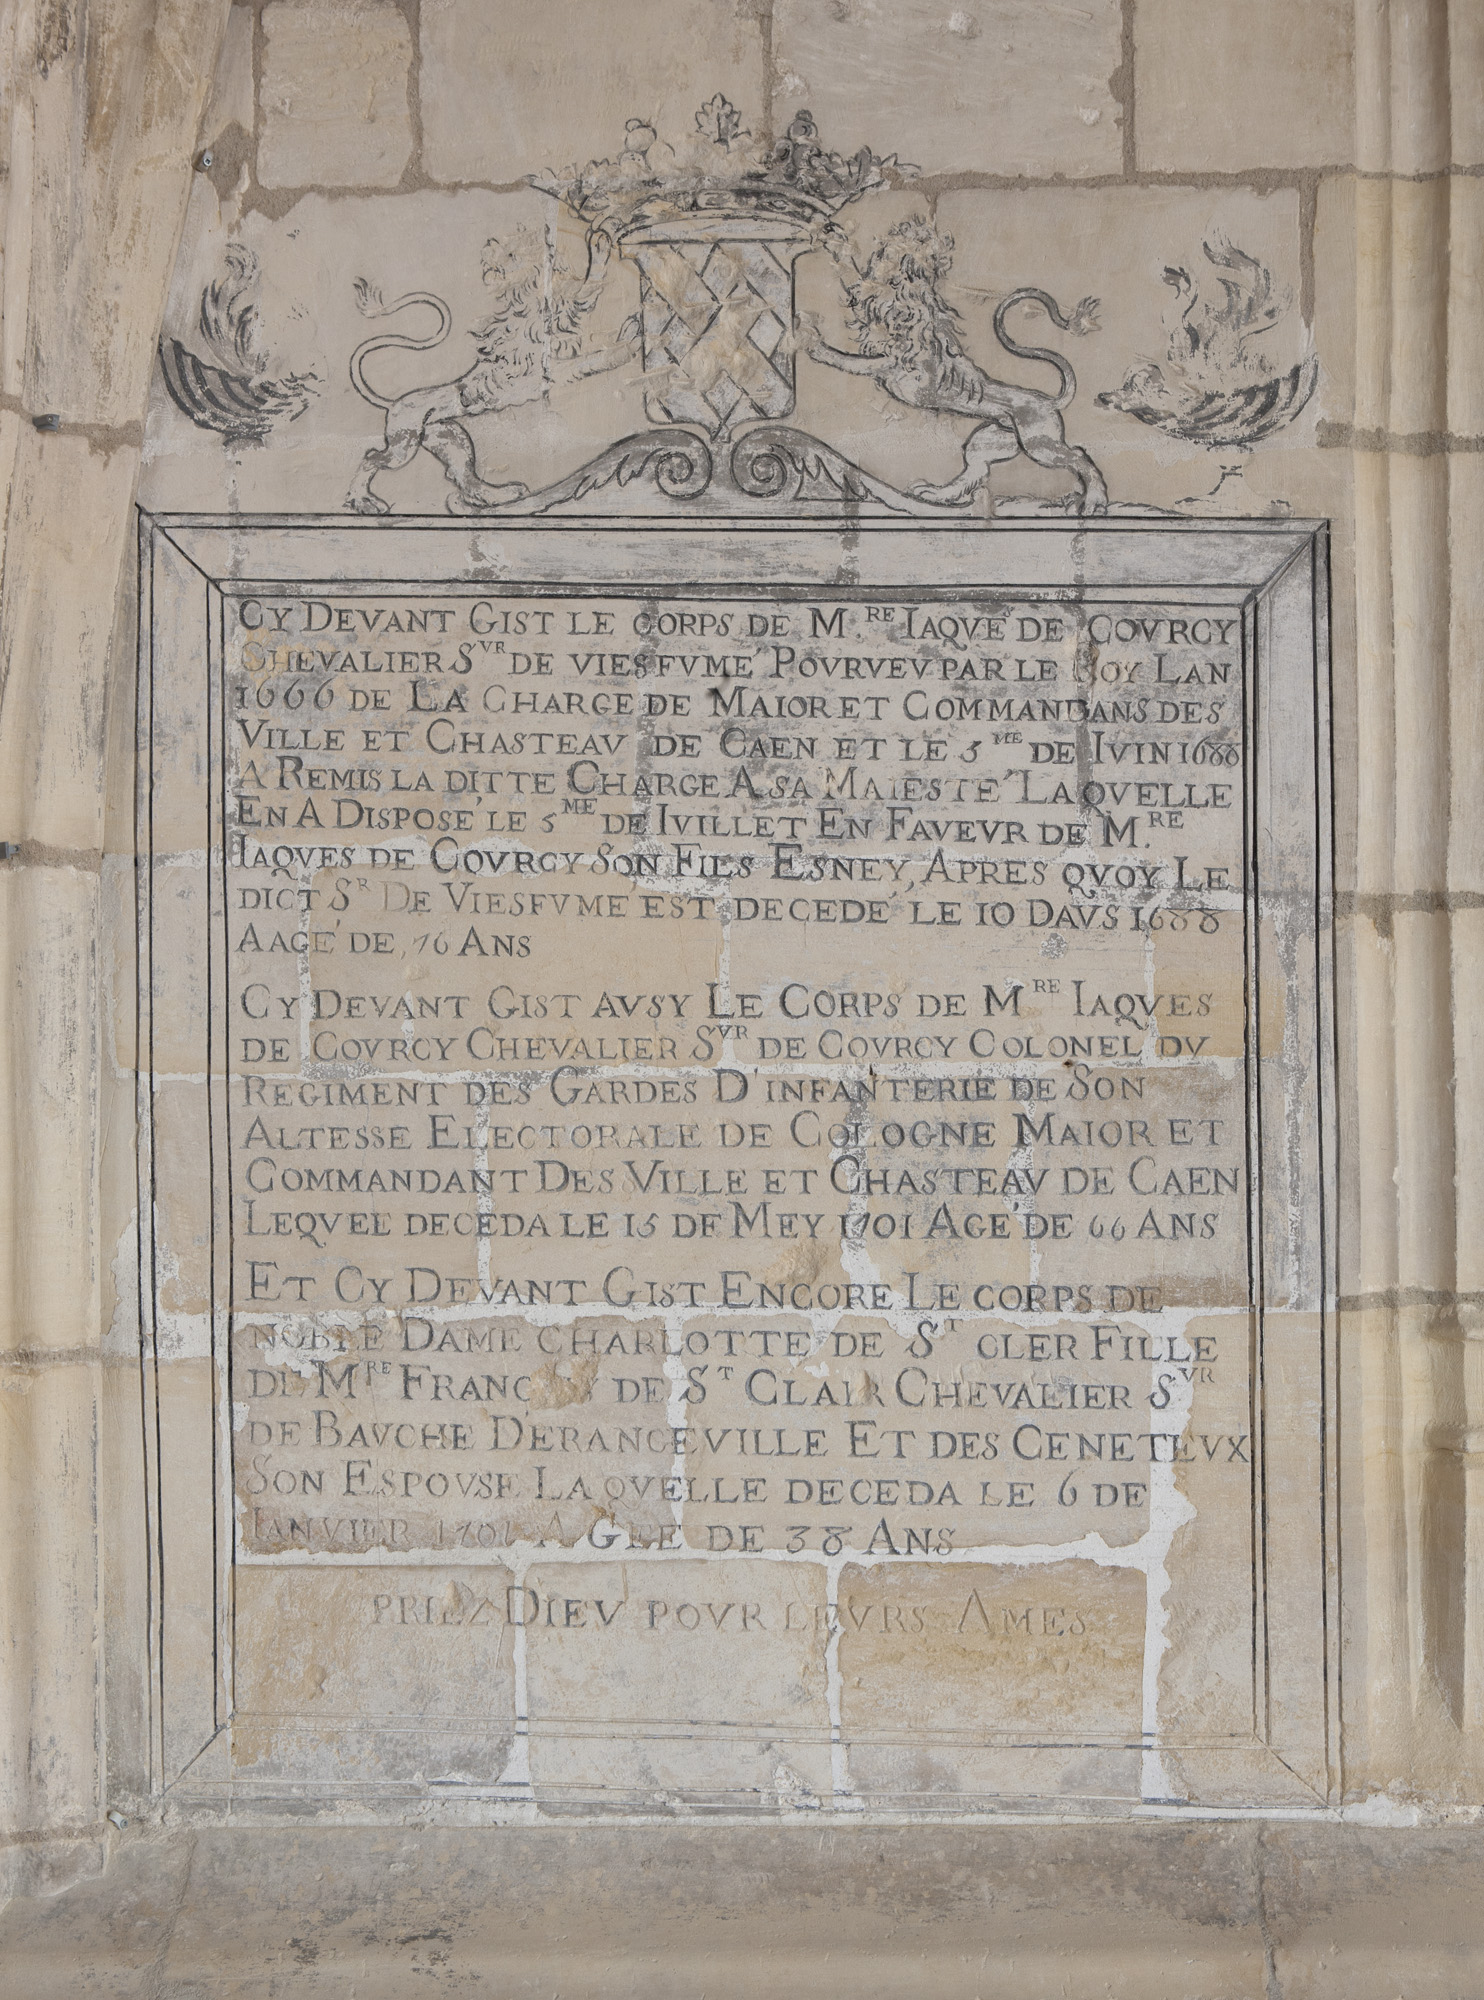 CY DEVANT GIST LE CORPS DE M.RE IAQVES DE COVRCY
CHEVALIER SVR DE VIESFVMÉ POVRVEV PAR LE ROY LAN
1666 DE LA CHARGE DE MAIOR ET COMMANDANS DES
VILLE ET CHASTEAV DE CAEN ET LE 5ME DE IVIN 1688
A REMIS LA DITTE CHARGE A SA MAIESTÉ LAQVELLE
EN A DISPOSÉ LE 5ME DE IVILLET EN FAVEVR DE M.RE
IAQVES DE COVRCY SON FILS ESNEY, APRES QVOY LE
DICT SR DE VIESFVMÉ EST DECEDÉ LE 10 DAVS 1688
AAGÉ DE, 76 ANS
CY DEVANT GIST AVSY LE CORPS DE MRE IAQVES
DE COVRCY CHEVALIER SVR DE COVRCY COLONEL DV
REGIMENT DES GARDES D'INFANTERIE DE SON
ALTESSE ELECTORALE DE COLOGNE MAIOR ET
COMMANDANT DES VILLE ET CHASTEAV DE CAEN
LEQVEL DECEDA LE 15 DE MEY 1701 AGÉ DE 66 ANS
ET CY DEVANT GIST ENCORE LE CORPS DE
NOBLE DAME CHARLOTTE DE ST CLER FILLE
DE MRE FRANC DE ST CLAIR CHEVALIER SVR
DE BAVCHE D'ERANGEVILLE ET DES CENETEVX
SON ESPOVSE LAQVELLE DECEDA LE 6 DE
IANVIER 1701 AGEE DE 38 ANS
PRIEZ DIEV POVR LEVRS AMES